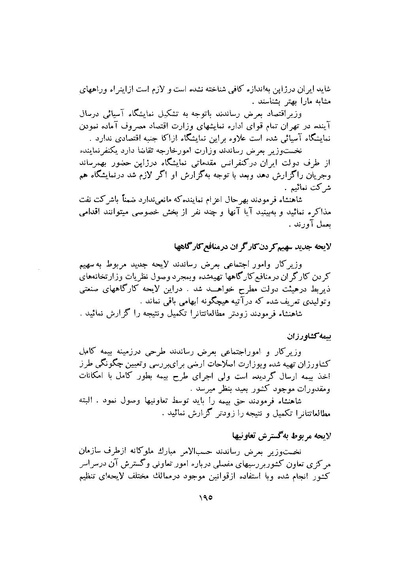 شاید ایران درژاپن به‌اندازه کافی شناخته نشده است و لازم است ازاینراه وراههای
مشابه مارا بهتر بشناسند .
وزیراقتصاد بعرض رساندند باتوجه به تشکیل نمایشگاه آسیائی درسال
آینده در تهران تمام قوای اداره نمایشهای وزارت اقتصاد مصروف آماده نمودن
نمایشگاه آسیائی شده است علاوه براین نمایشگاه ازاکا جنبه اقتصادی ندارد .
نخست‌وزیر بعرض رساندند وزارت امورخارجه تقاضا دارد یکنفرنماینده
از طرف دولت ایران درکنفرانس مقدماتی نمایشگاه درژاپن حضور بهمرساند
وجریان راگزارش دهد وبعد با توجه به‌گزارش او اگر لازم شد درنمایشگاه هم
شرکت نمائیم .
شاهنشاه فرمودند بهرحال اعزام نماینده‌که مانعی‌ندارد ضمناً باشرکت نفت
مذاکره نمائید و به‌بینید آیا آنها و چند نفر از بخش خصوصی میتوانند اقدامی
بعمل آورند .
لایحه جدید سهیم‌کردن‌کارگران درمنافع‌کارگاهها
وزیرکار وامور اجتماعی بعرض رساندند لایحه جدید مربوط به‌سهیم
کردن کارگران درمنافع‌کارگاهها تهیه‌شده وبمجرد وصول نظریات وزارتخانه‌های
ذیربط درهیئت دولت مطرح خواهد شد . دراین لایحه کارگاههای صنعتی
وتولیدی تعریف شده که درآتیه هیچگونه ابهامی باقی نماند .
شاهنشاه فرمودند زودتر مطالعاتتانرا تکمیل ونتیجه را گزارش نمائید .
بیمه‌کشاورزان
وزیرکار و اموراجتماعی بعرض رساندند طرحی درزمینه بیمه کامل
کشاورزان تهیه شده وبوزارت اصلاحات ارضی برای‌بررسی وتعیین چگونگی طرز
اخذ بیمه ارسال گردیده است ولی اجرای طرح بیمه بطور کامل با امکانات
ومقدورات موجود کشور بعید بنظر میرسد .
شاهنشاه فرمودند حق بیمه را باید توسط تعاونیها وصول نمود . البته
مطالعاتتانرا تکمیل و نتیجه را زودتر گزارش نمائید .
لایحه مربوط به‌گسترش تعاونیها
نخست‌وزیر بعرض رساندند حسب‌الامر مبارك ملوکانه ازطرف سازمان
مرکزی تعاون کشوربررسیهای مفصلی درباره امور تعاونی وگسترش آن درسراسر
کشور انجام شده وبا استفاده ازقوانین موجود درممالك مختلف لایحه‌ای تنظیم
۱۹۵